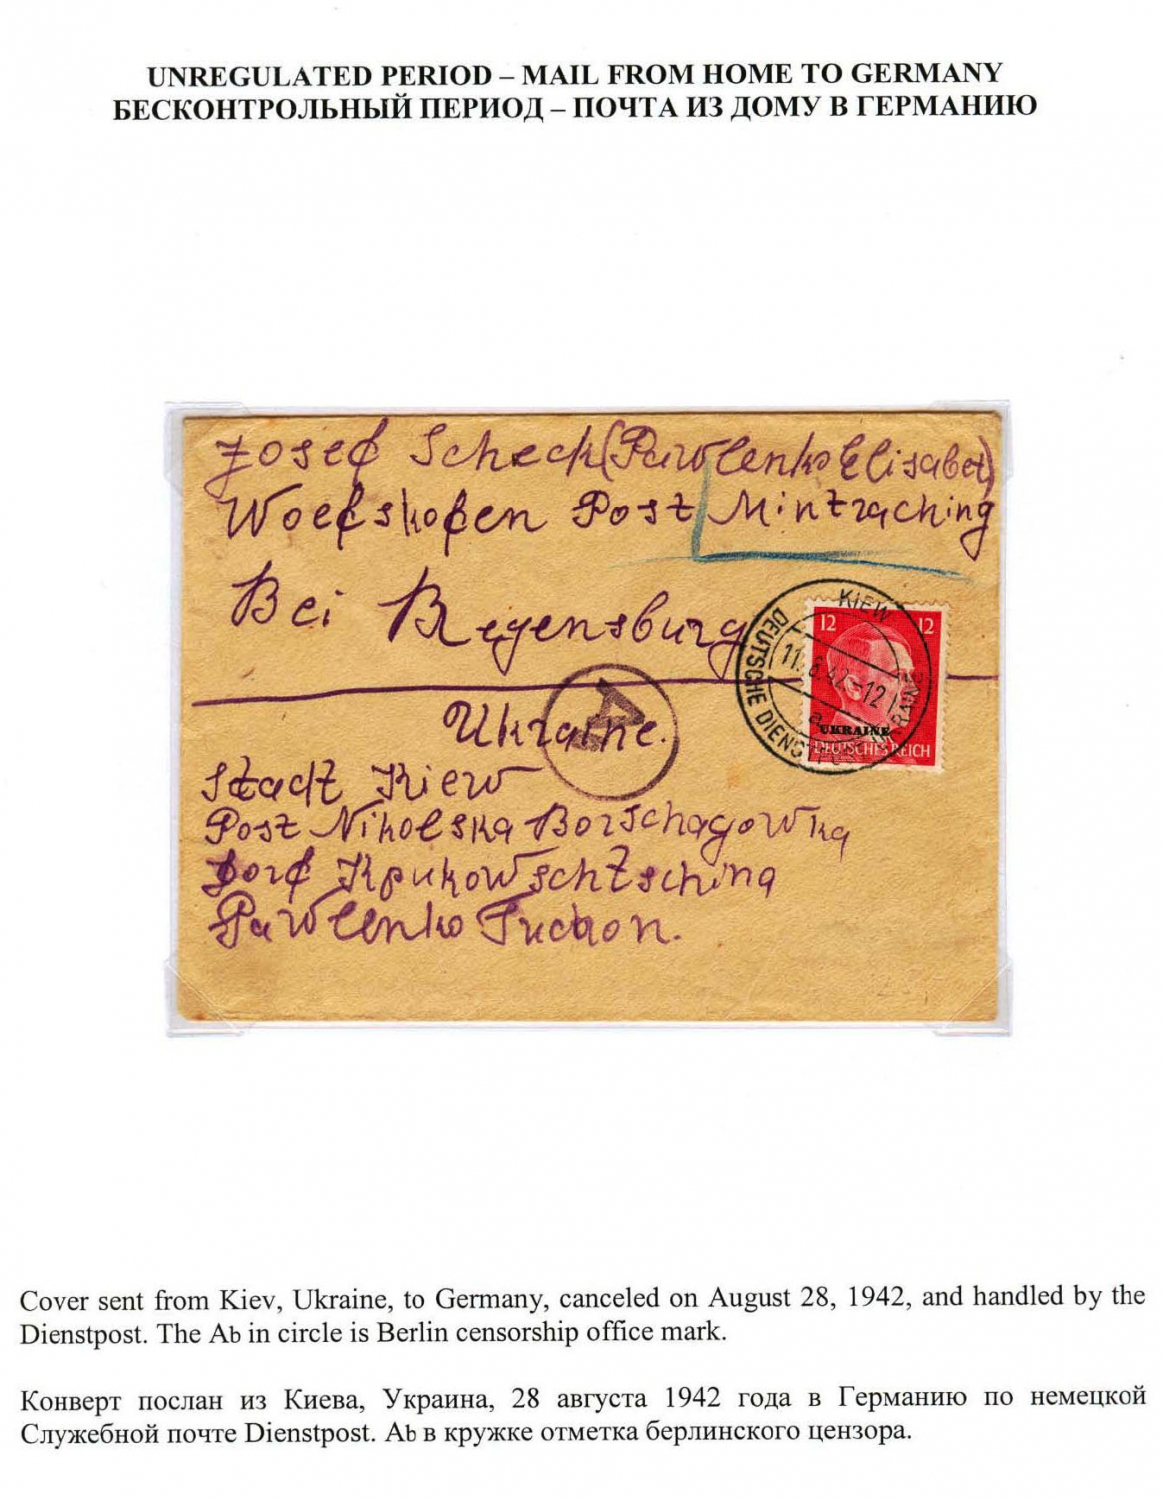 UNREGULATED PERIOD – MAIL FROM HOME TO GERMANY
БЕСКОНТРОЛЬНЫЙ ПЕРИОД – ПОЧТА ИЗ ДОМУ В ГЕРМАНИЮ
Josef Scheck (Pawlenko Elisabet)
Woefskofen Post Mintraching
Bei Regensburg
KIEW
DEUTSCHE DIENSTPOST UKRAINE
12 12
UKRAINE
DEUTSCHES REICH
Ukraine.
Stadt Kiew
Post Nikolska Borschagowka
Dorf
Pawlenko
Cover sent from Kiev, Ukraine, to Germany, canceled on August 28, 1942, and handled by the
Dienstpost. The Ab in circle is Berlin censorship office mark.
Конверт послан из Киева, Украина, 28 августа 1942 года в Германию по немецкой
Служебной почте Dienstpost. Ab в кружке отметка берлинского цензора.